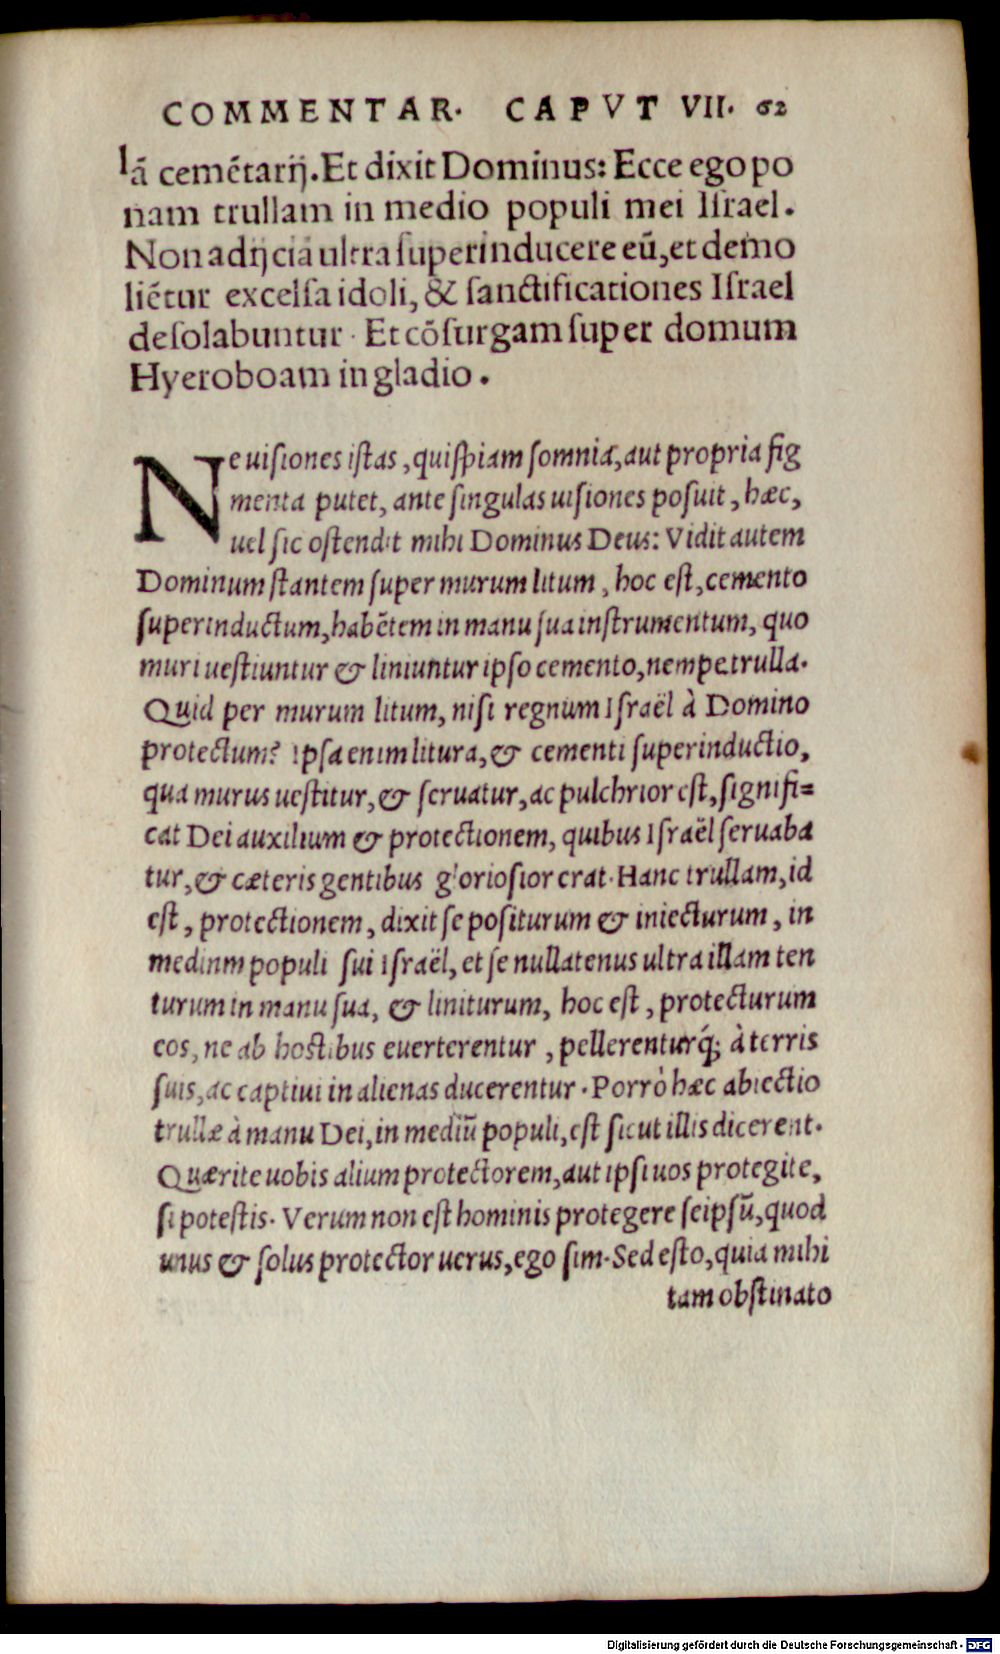 COMMENTAR. CAPVT VII. 62
lā cemētarij. Et dixit Dominus: Ecce ego po
nam trullam in medio populi mei Iſrael.
Non adijciā ultra ſuperinducere eū, et demo
liētur excelſa idoli, & ſanctificationes Iſrael
deſolabuntur. Et cōſurgam ſuper domum
Hyeroboam in gladio.
Ne uiſiones iſtas, quiſpiam ſomnia, aut propria fig
menta putet, ante ſingulas uiſiones poſuit, hæc,
uel ſic oſtendit mihi Dominus Deus: Vidit autem
Dominum ſtantem ſuper murum litum, hoc eſt, cemento
ſuperinductum, habētem in manu ſua inſtrumentum, quo
muri ueſtiuntur & liniuntur ipſo cemento, nempe trulla.
Quid per murum litum, niſi regnum Iſraël à Domino
protectum? Ipſa enim litura, & cementi ſuperinductio,
qua murus ueſtitur, & ſeruatur, ac pulchrior eſt, ſignifi=
cat Dei auxilium & protectionem, quibus Iſraël ſeruaba
tur, & cæteris gentibus glorioſior erat. Hanc trullam, id
eſt, protectionem, dixit ſe poſiturum & iniecturum, in
medinm populi ſui Iſraël, et ſe nullatenus ultra illam ten
turum in manu ſua, & liniturum, hoc eſt, protecturum
eos, ne ab hoſtibus euerterentur, pellerenturq́; à terris
ſuis, ac captiui in alienas ducerentur. Porrò hæc abiectio
trullæ à manu Dei, in mediū populi, eſt ſicut illis dicerent.
Quærite uobis alium protectorem, aut ipſi uos protegite,
ſi poteſtis. Verum non eſt hominis protegere ſeipſū, quod
unus & ſolus protector uerus, ego ſim. Sed eſto, quia mihi
tam obſtinato
Digitalisierung gefördert durch die Deutsche Forschungsgemeinschaft - DFG